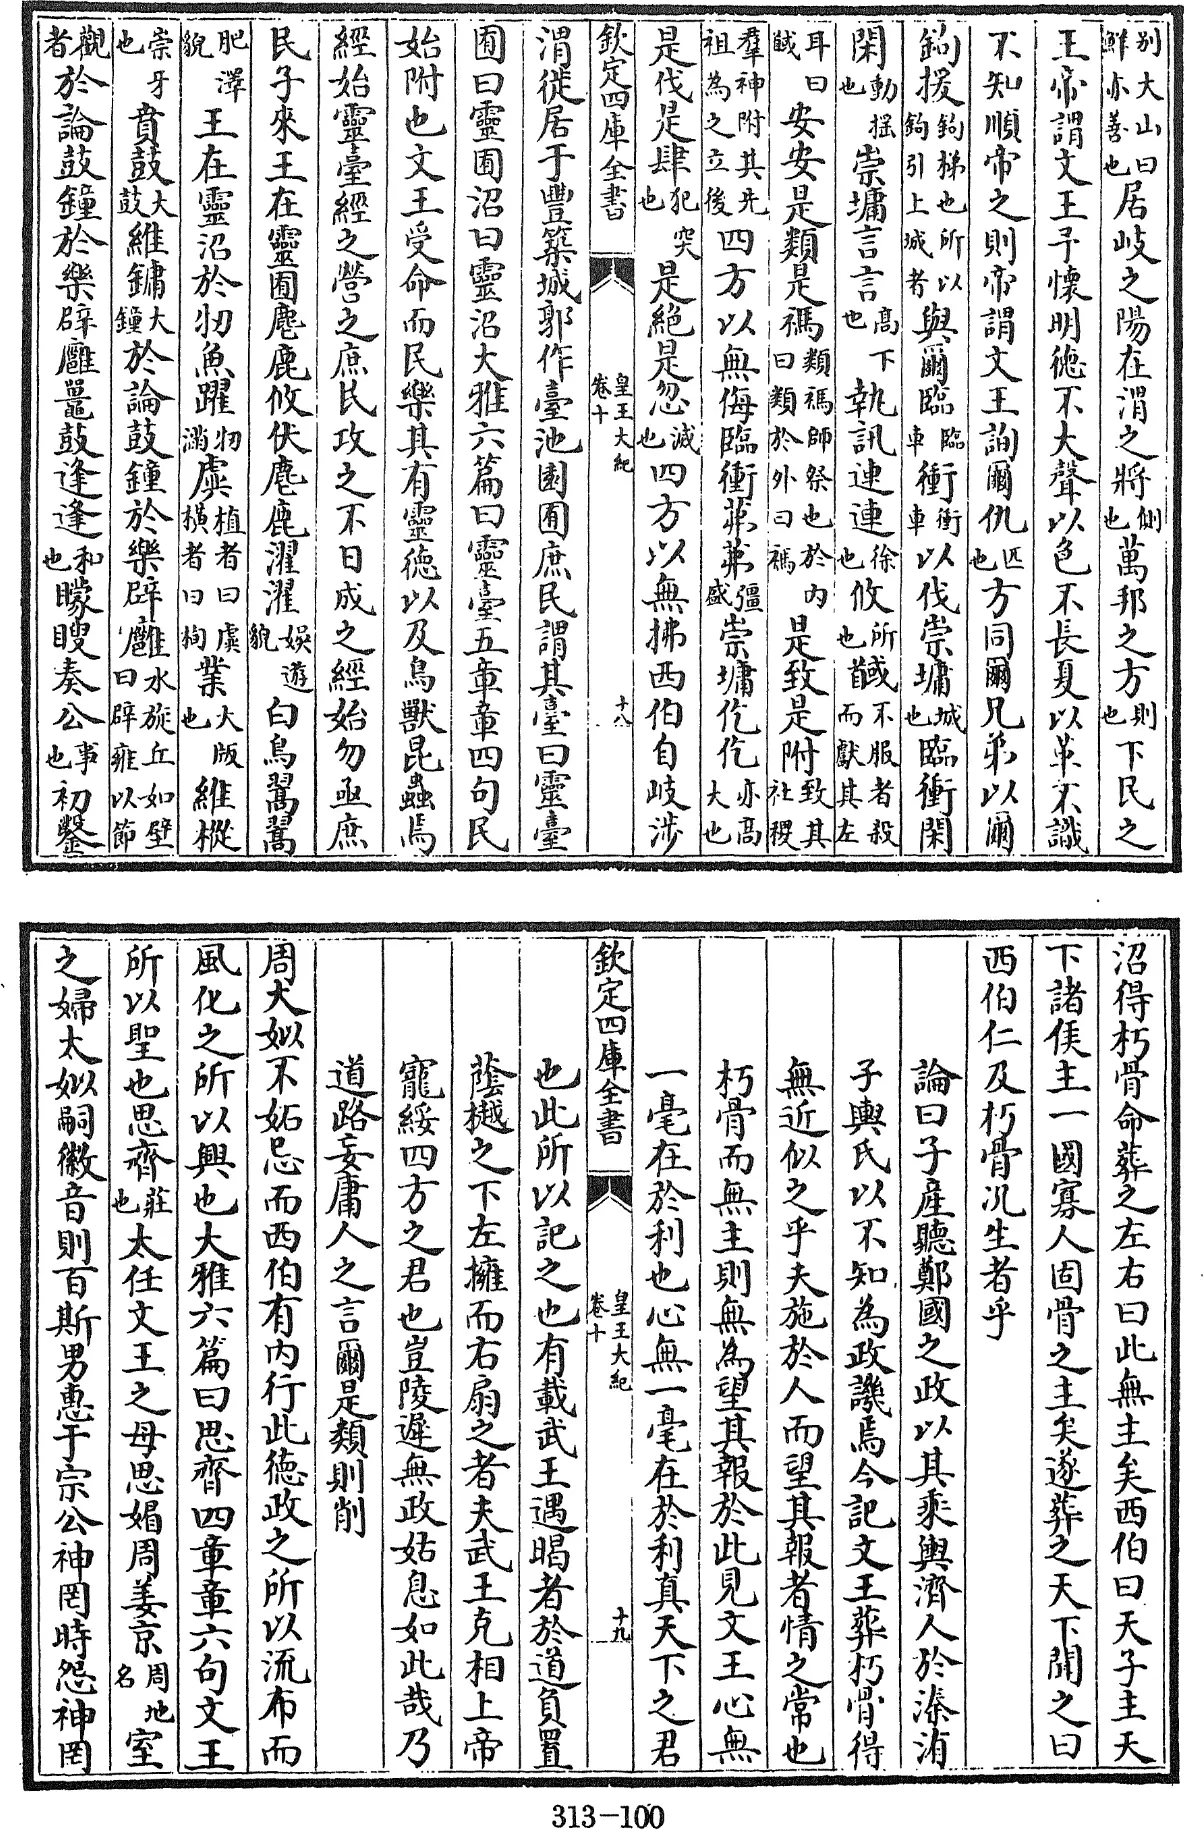 別大山曰鮮亦善也居岐之陽在渭之將側也萬邦之方則也下民之
王帝謂文王予懷明德不大聲以色不長夏以革不識
不知順帝之則帝謂文王詢爾仇匹也方同爾兄弟以爾
鈎援鈎梯也所以鈎引上城者與爾臨臨車衝衝車以伐崇墉城也臨衝閑
閑動揺也崇墉言言高下也執訊連連徐也攸所也馘不服者殺而獻其左
耳曰馘安安是類是禡類禡師祭也於内曰類於外曰禡是致是附致其社稷
羣神附其先祖為之立後四方以無侮臨衝茀茀彊盛崇墉仡仡亦高大也
是伐是肆犯突也是絶是忽滅也四方以無拂西伯自岐涉
欽定四庫全書 皇王大紀 卷十 十八
渭徙居于豐築城郭作臺池園囿庶民謂其臺曰靈臺
囿曰靈囿沼曰靈沼大雅六篇曰靈臺五章章四句民
始附也文王受命而民樂其有靈德以及鳥獸昆蟲焉
經始靈臺經之營之庶民攻之不日成之經始勿亟庶
民子來王在靈囿麀鹿攸伏麀鹿濯濯娛遊貌白鳥翯翯
肥澤貌王在靈沼於牣魚躍牣滿虡植者曰虡橫者曰栒業大版也維樅
崇牙也賁鼓大鼓維鏞大鐘於論鼓鐘於樂辟廱水旋丘如壁曰辟雍以節
觀者於論鼓鐘於樂辟廱鼉鼓逢逢和也矇瞍奏公事也初鑿
沼得朽骨命葬之左右曰此無主矣西伯曰天子主天
下諸侯主一國寡人固骨之主矣遂葬之天下聞之曰
西伯仁及朽骨况生者乎
論曰子產聽鄭國之政以其乘輿濟人於溱洧
子輿氏以不知為政譏焉今記文王葬朽骨得
無近似之乎夫施於人而望其報者情之常也
朽骨而無主則無為望其報於此見文王心無
一毫在於利也心無一毫在於利真天下之君
欽定四庫全書 皇王大紀 卷十 十九
也此所以記之也有載武王遇暍者於道負置
蔭樾之下左擁而右扇之者夫武王克相上帝
寵綏四方之君也豈陵遲無政姑息如此哉乃
道路妄庸人之言爾是類則削
周大姒不妬忌而西伯有内行此德政之所以流布而
風化之所以興也大雅六篇曰思齊四章章六句文王
所以聖也思齊莊也太任文王之母思媚周姜京周地名室
之婦太姒嗣徽音則百斯男惠于宗公神罔時怨神罔
313-100